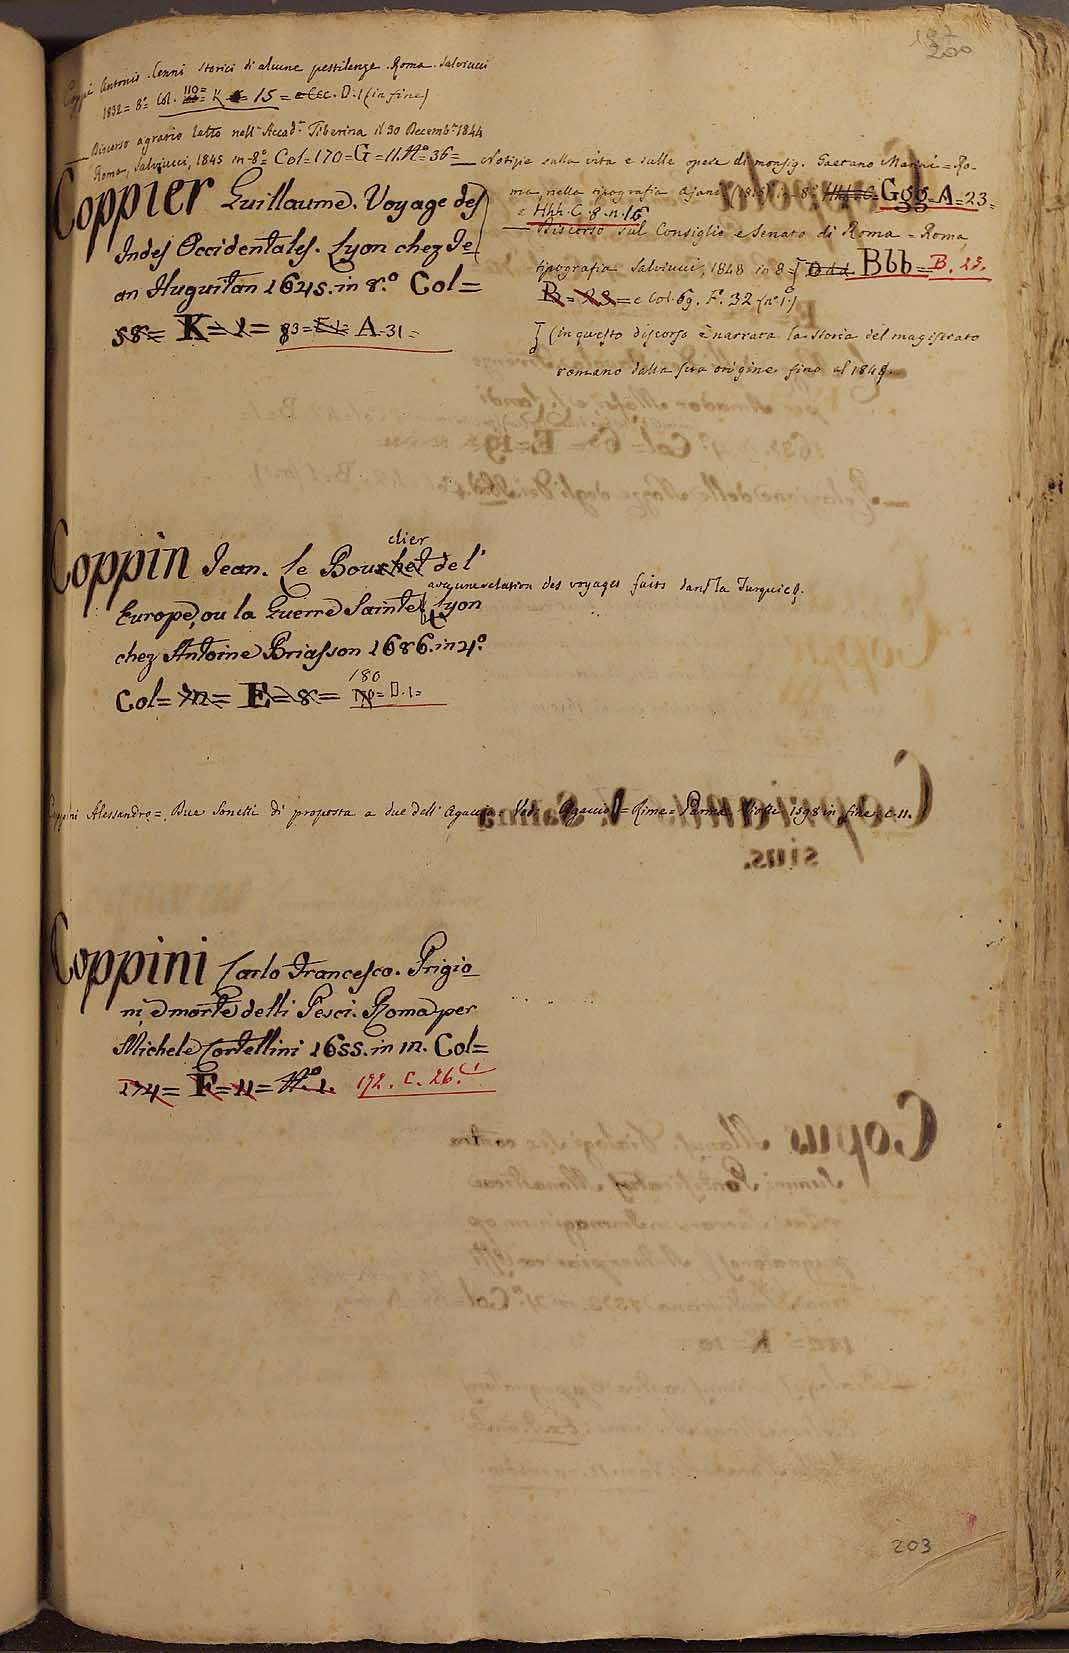 200
Coppi Antonio. Cenni storici di alcune pestilenze. Roma. Salviucci
1832 = 8º Col. 110 = K = 15 = e Ccc. D. 1 (in fine)
— Discorso agrario letto nell' Accad.ª Tiberina il 30 Decemb.e 1844
Roma, Salviucci, 1845 in-8º = Col = 170 = G = 11. Nº 36 =
— Notizie sulla vita e sulle opere di monsig. Gaetano Marini = Ro-
ma, nella tipografia Ggg = A = 23 =
= Hhh. C. 8. n. 16
— Discorso sul Consiglio e Senato di Roma = Roma,
tipografia Salviucci, 1848 in 8 = Ddd. Bbb = B. 25.
B = 23 = e Col. 69. F. 32 (nº 1.)
(in questo discorso è narrata la storia del magistrato
romano dalla sua origine fino al 1848.
Coppier Guillaume. Voyage des
Indes Occidentales. Lyon chez Je-
an Huguitan 1645. in 8.º Col =
58 = K = 1 = 83 = E. 1 = A. 31 =
Coppin Jean. Le Bouchet de l'
clier
Europe, ou la Guerre Sainte Lyon
avec une relation des voyages faits dans la Turquie &.
chez Antoine Briasson 1686. in 4.º
Col = E = 8 = 180 = D. 1 =
Coppini Alessandro = Due Sonetti di proposta a due dell' Agaccio Ved. Agaccio = Rime = Parma Viotti 1598 in fine. c. 11.
Coppini Carlo Francesco. Prigio-
ni, e morte delli Pesci. Roma per
Michele Cortellini 1655. in 12. Col =
174 = F = 11 = Nº 1. 172. C. 26.
203